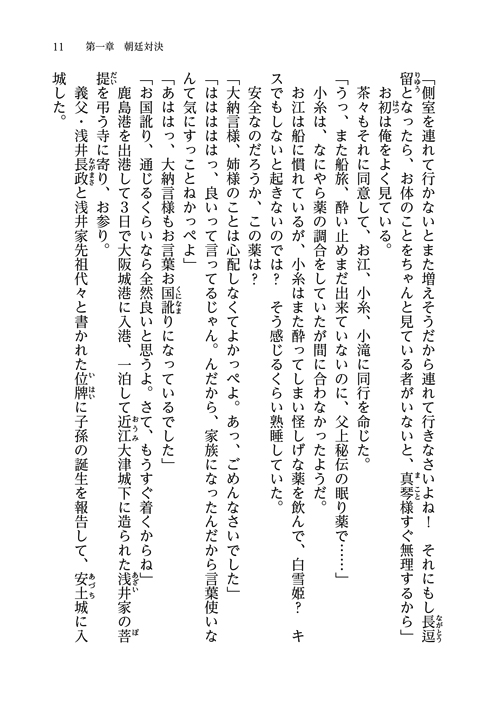 11　第一章　朝廷対決
「側室を連れて行かないとまた増えそうだから連れて行きなさいよね！　それにもし長逗
留となったら、お体のことをちゃんと見ている者がいないと、真琴様すぐ無理するから」
お初は俺をよく見ている。
茶々もそれに同意して、お江、小糸、小滝に同行を命じた。
「うっ、また船旅、酔い止めまだ出来ていないのに、父上秘伝の眠り薬で……」
小糸は、なにやら薬の調合をしていたが間に合わなかったようだ。
お江は船に慣れているが、小糸はまた酔ってしまい怪しげな薬を飲んで、白雪姫？　キ
スでもしないと起きないのでは？　そう感じるくらい熟睡していた。
安全なのだろうか、この薬は？
「大納言様、姉様のことは心配しなくてよかっぺよ。あっ、ごめんなさいでした」
「はははははっ、良いって言ってるじゃん。んだから、家族になったんだから言葉使いな
んて気にすっことねかっぺよ」
「あははっ、大納言様もお言葉お国訛りになっているでした」
「お国訛り、通じるくらいなら全然良いと思うよ。さて、もうすぐ着くからね」
鹿島港を出港して３日で大阪城港に入港、一泊して近江大津城下に造られた浅井家の菩
提を弔う寺に寄り、お参り。
義父・浅井長政と浅井家先祖代々と書かれた位牌に子孫の誕生を報告して、安土城に入
城した。